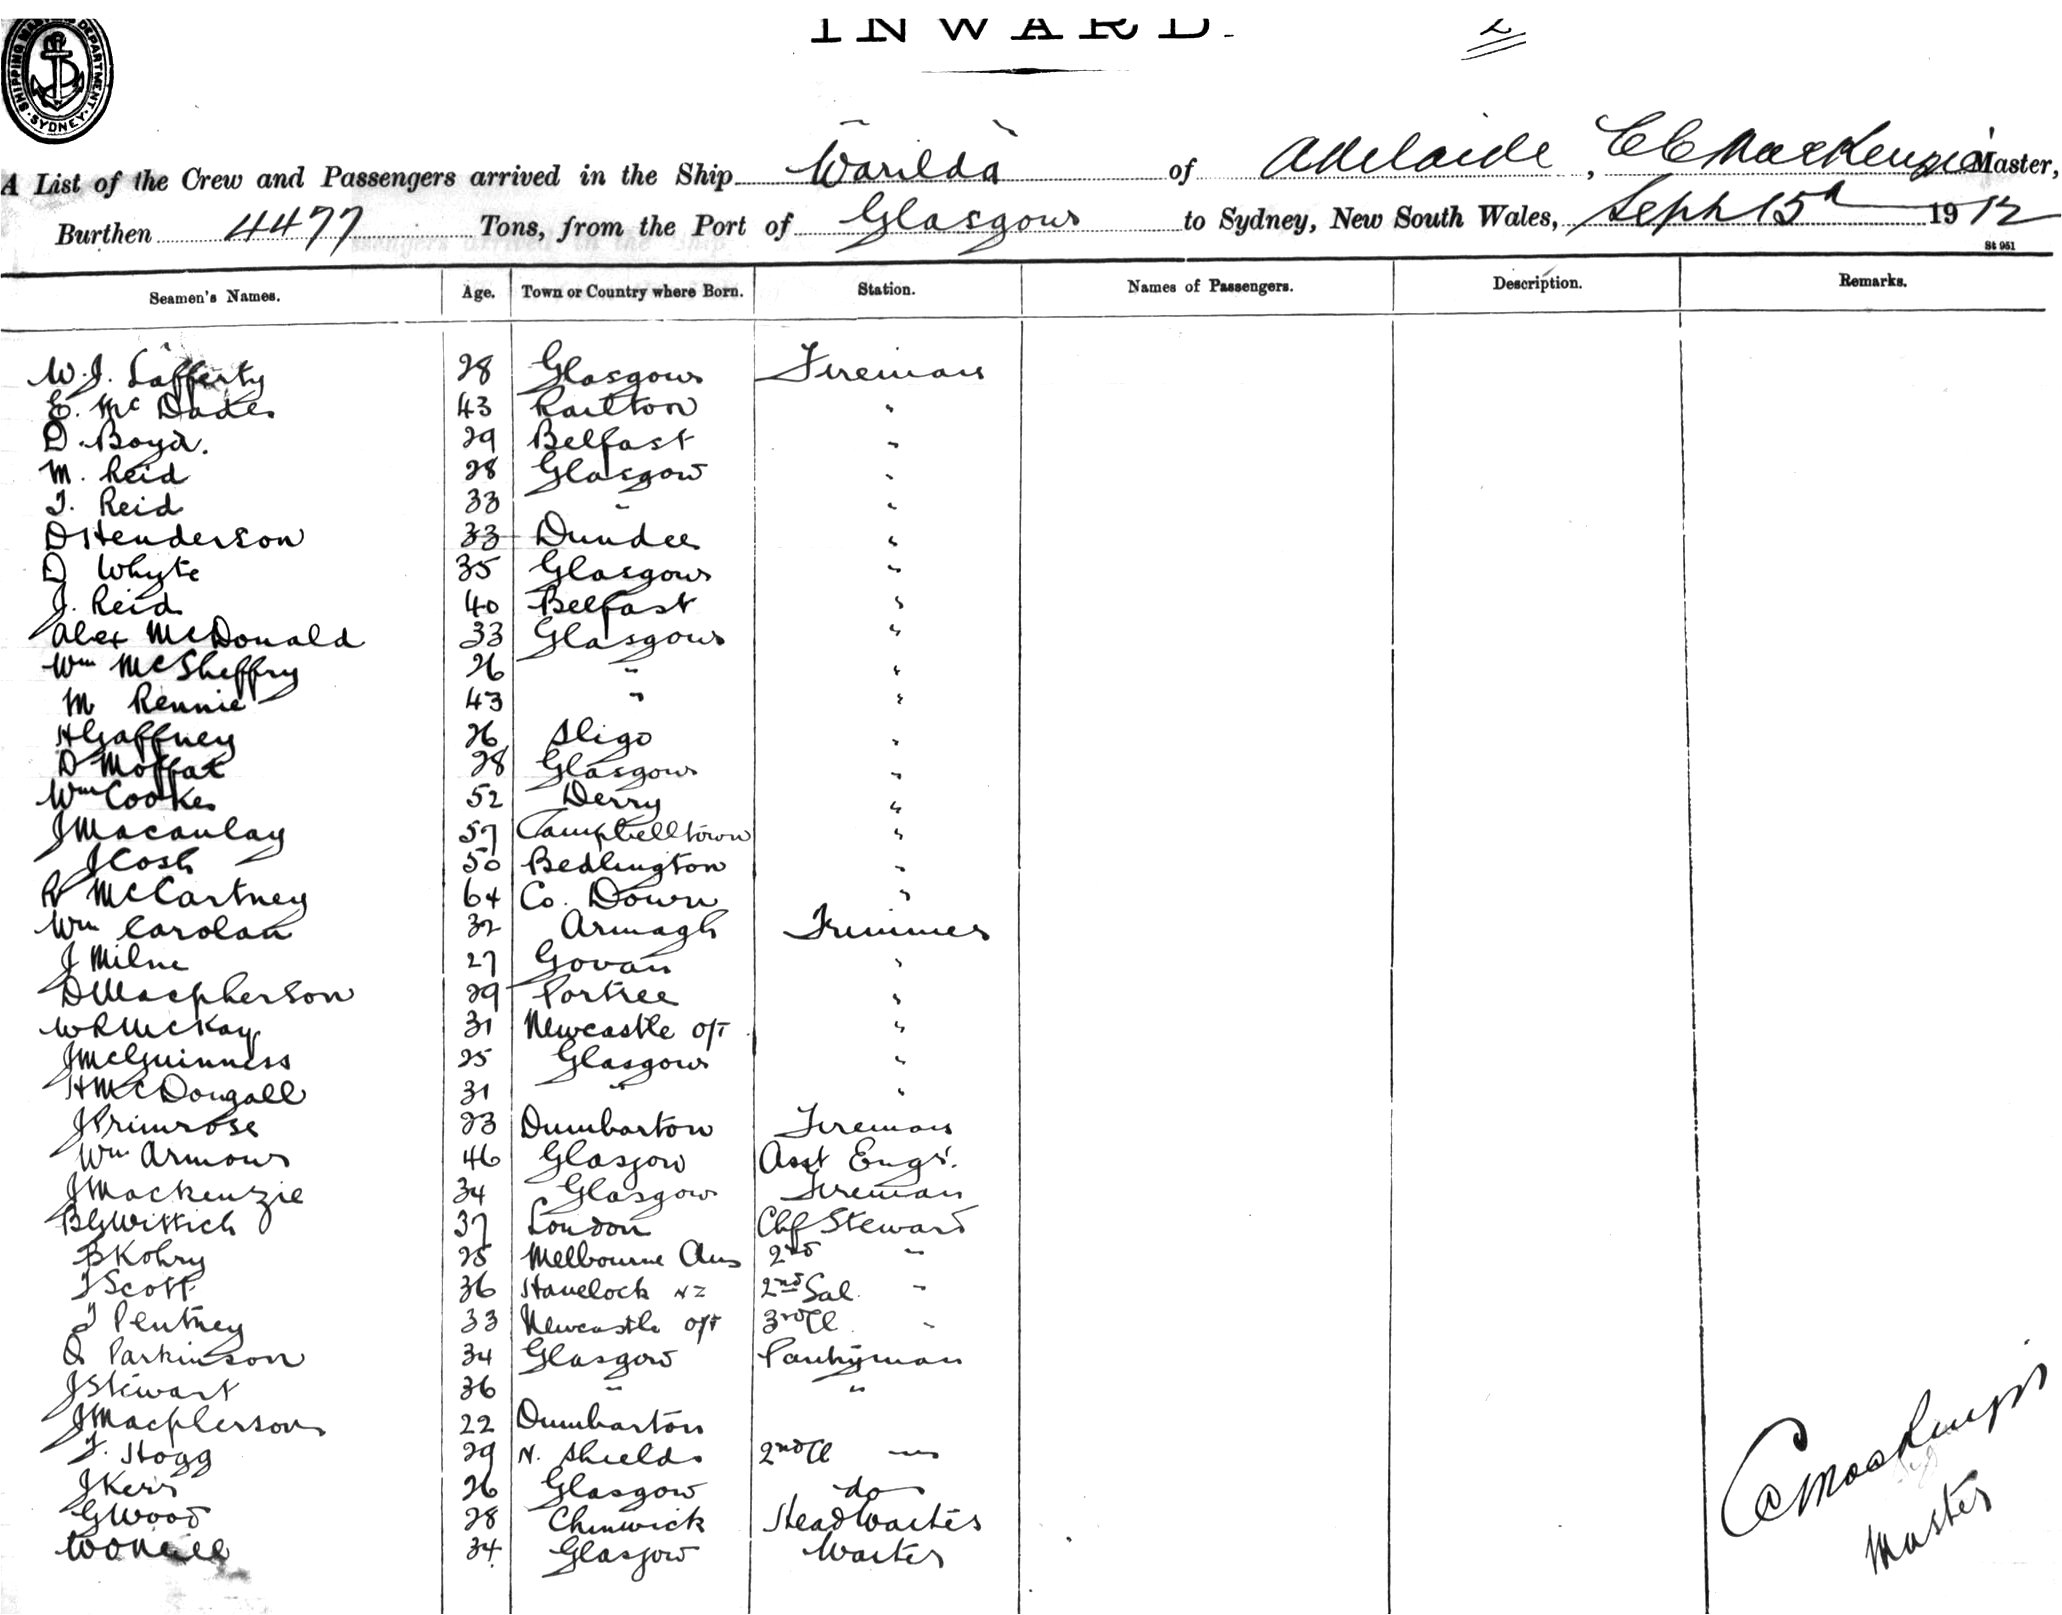 SHIPPING MASTERS DEPARTMENT · SYDNEY ·
INWARD.
2
A List of the Crew and Passengers arrived in the Ship "Warilda" of Adelaide, C C MacKenzie Master,
Burthen 4477 Tons, from the Port of Glasgow to Sydney, New South Wales, Sept 15th 1912
St 951
Seamen's Names. Age. Town or Country where Born. Station. Names of Passengers. Description. Remarks.
W. J. Lafferty 28 Glasgow Fireman
E. Mc Dade 43 "
D. Boyd. 29 Belfast "
M. Reid 28 Glasgow "
T. Reid 33 " "
D Henderson 33 Dundee "
D Whyte 35 Glasgow "
J. Reid 40 Belfast "
Alex McDonald 33 Glasgow "
Wm McSheffry 26 " "
M Rennie 43 " "
H Gaffney 26 Sligo "
D Moffat 28 Glasgow "
Wm Cooke 52 Derry "
J Macaulay 57 Campbelltown "
J Cosh 50 Bedlington "
R McCartney 64 Co. Down "
Wm Carolan 32 Armagh Trimmer
J Milne 27 Govan "
D Macpherson 29 Portree "
W R McKay 31 Newcastle o/T "
J McGuinness 25 Glasgow "
H McDougall 31 " "
J Primrose 23 Dumbarton Fireman
Wm Armour 46 Glasgow Asst Engr.
J Mackenzie 34 Glasgow Fireman
B G Wittich 37 London Chf Steward
B Kohry 25 Melbourne Aus 2nd "
T Scott 36 Havelock NZ 2nd Sal. "
T Pentney 33 Newcastle o/T 3rd Cl. "
Parkinson 34 Glasgow Pantryman
J Stewart 36 " "
J Macpherson 22 Dumbarton
T. Hogg 29 N. Shields 2nd Cl "
J Kerr 26 Glasgow do
G Wood 28 Head Waiter
W O'Neill 34 Glasgow Waiter
C C MacKenzie
Master